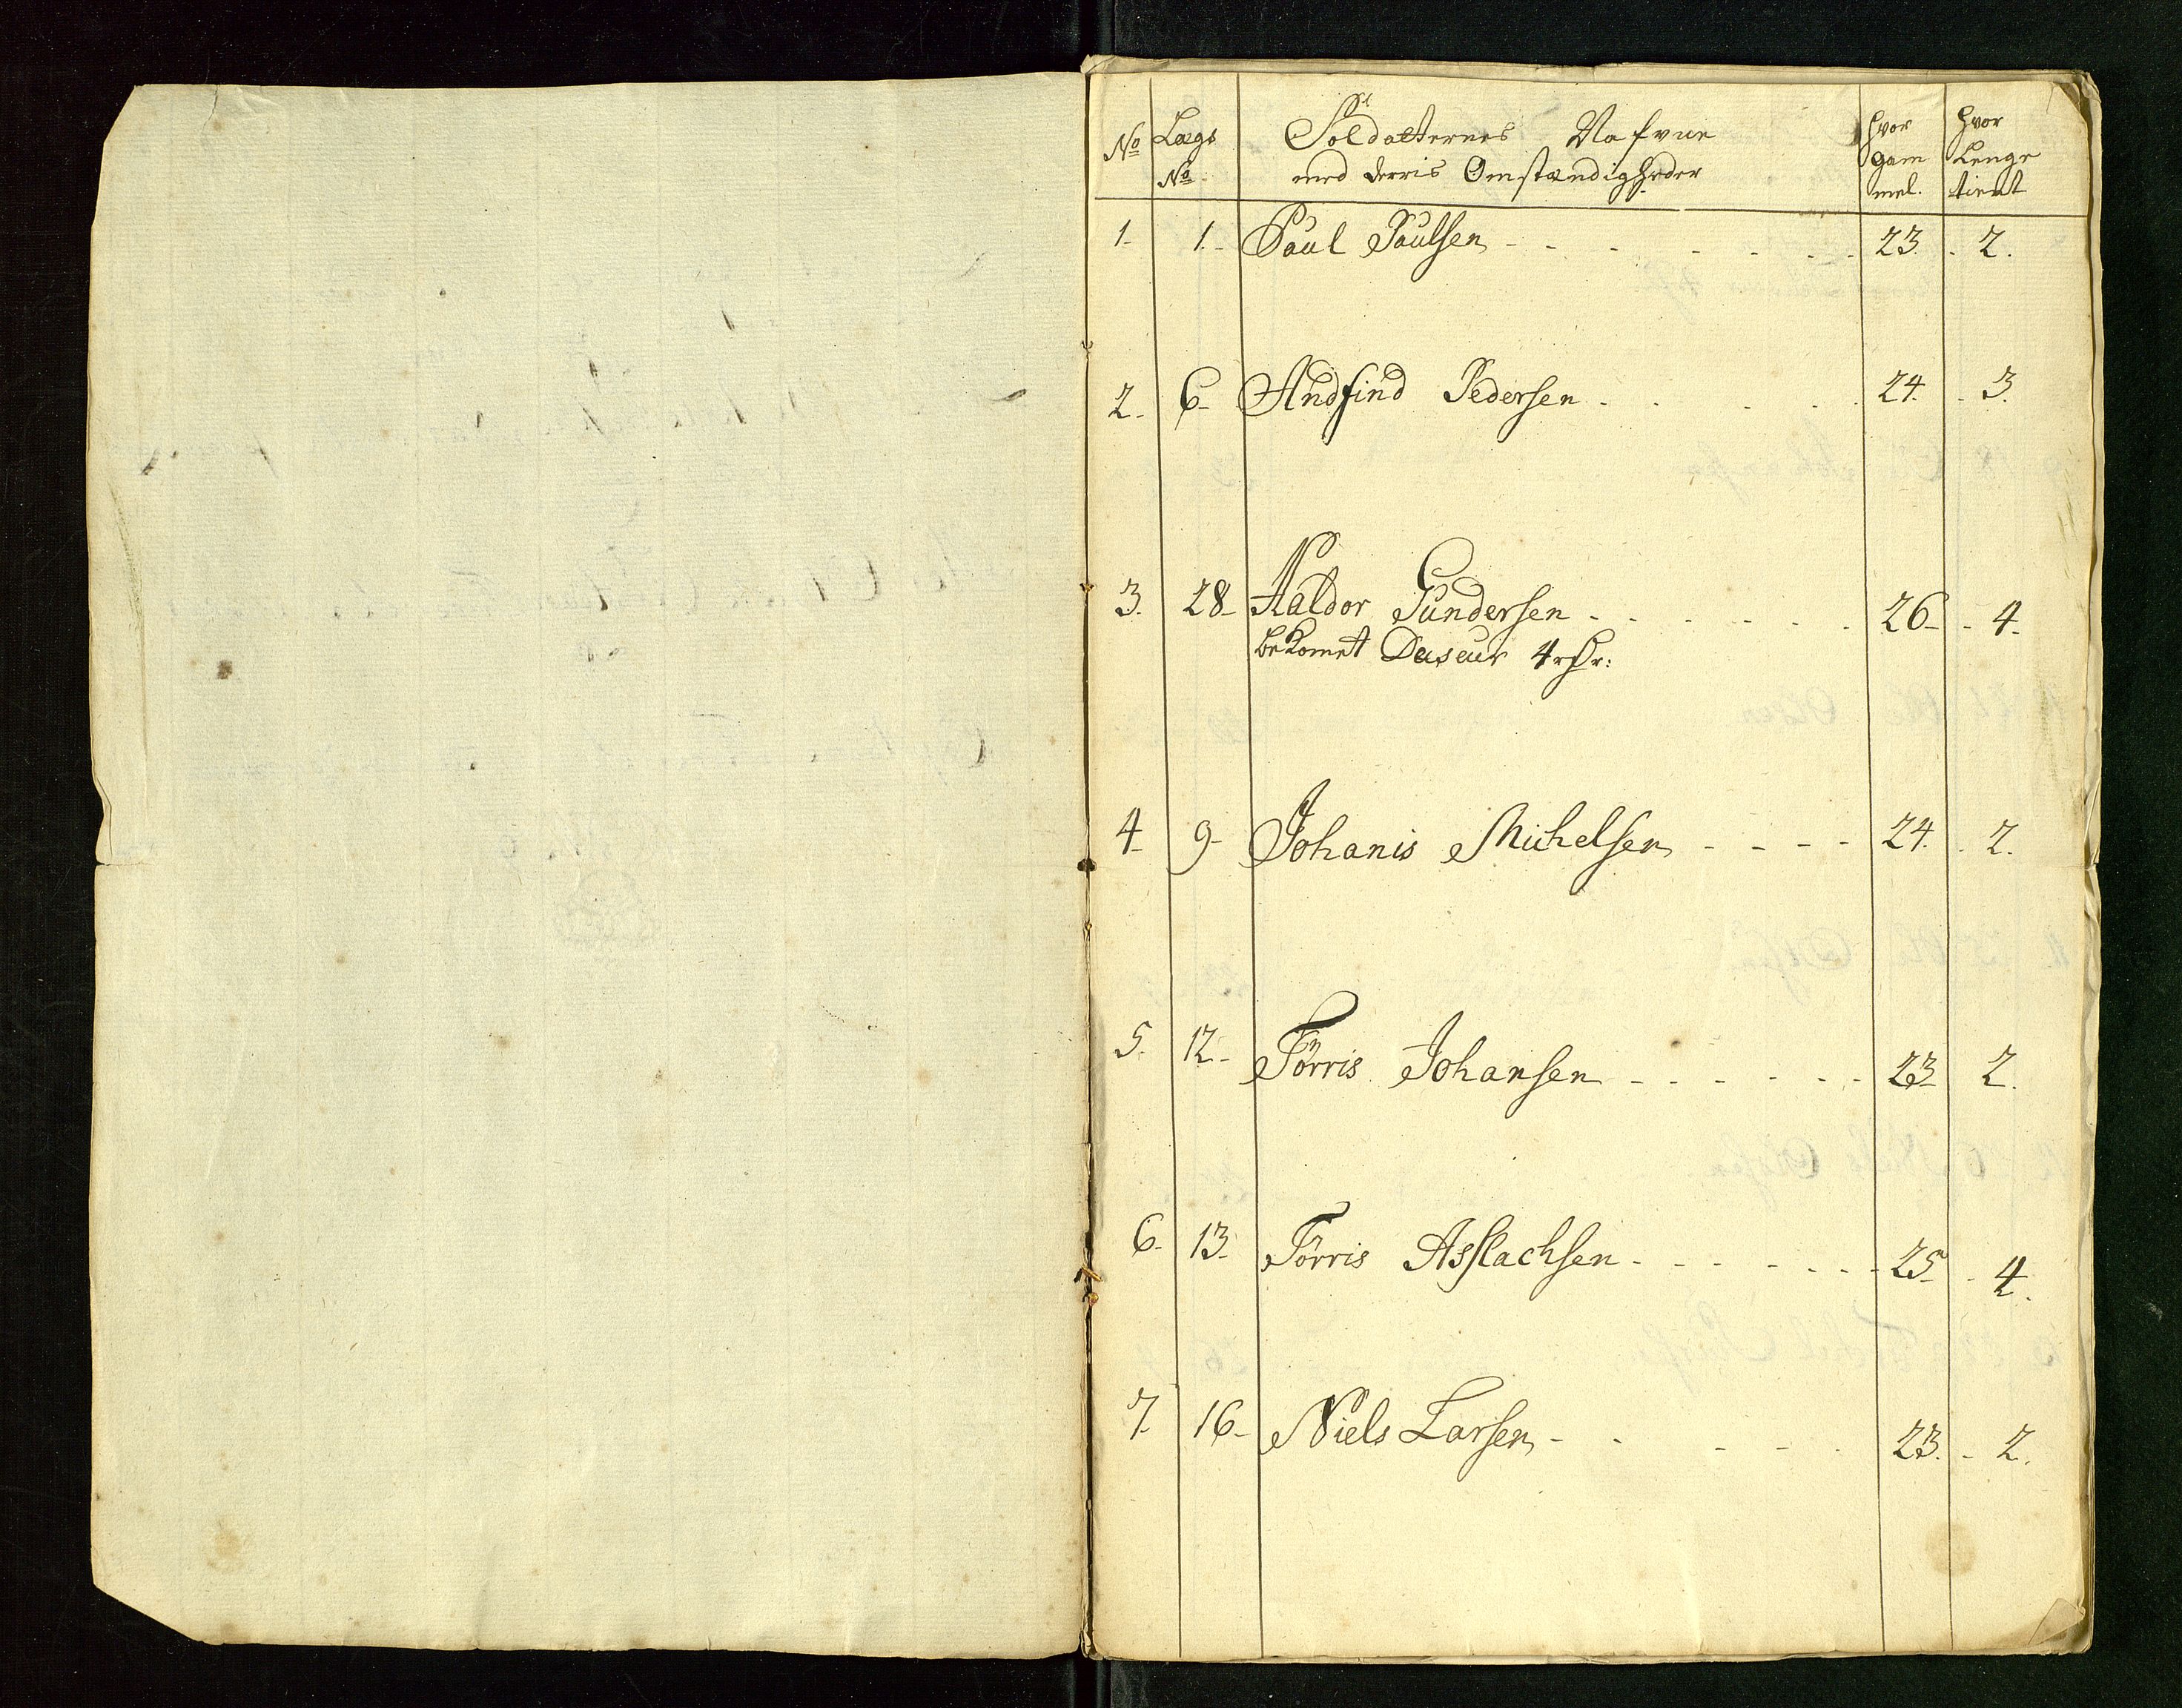 No Lægs Soldatternes Nafvne hvor hvor
No med derris Omstændigheder gam Lenge
mel. tient
1. 1. Paul Paulsen 23. 2.
2. 6. Andfind Pedersen 24. 3.
3. 28 Haldor Gundersen 26 4.
bekomet Duseur 4 rdr:
4 9 Johanis Michelsen 24. 2.
5. 12 Törris Johansen 23 2.
6. 13 Törris Asslachsen 25 4.
7. 16 Niels Larsen 23. 2.